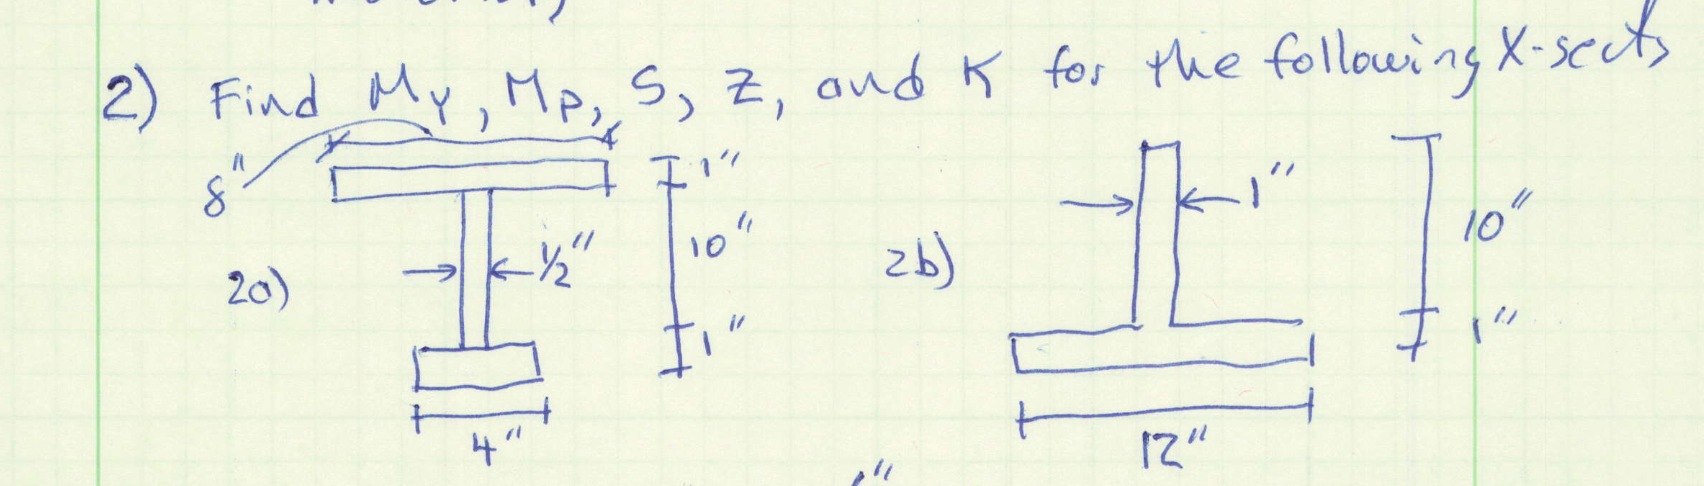 2) Find My, Mp, S, Z, and K for the following X-sects
8"
1"
10"
1/2"
1"
2a)
4"
2b)
1"
10"
1"
12"